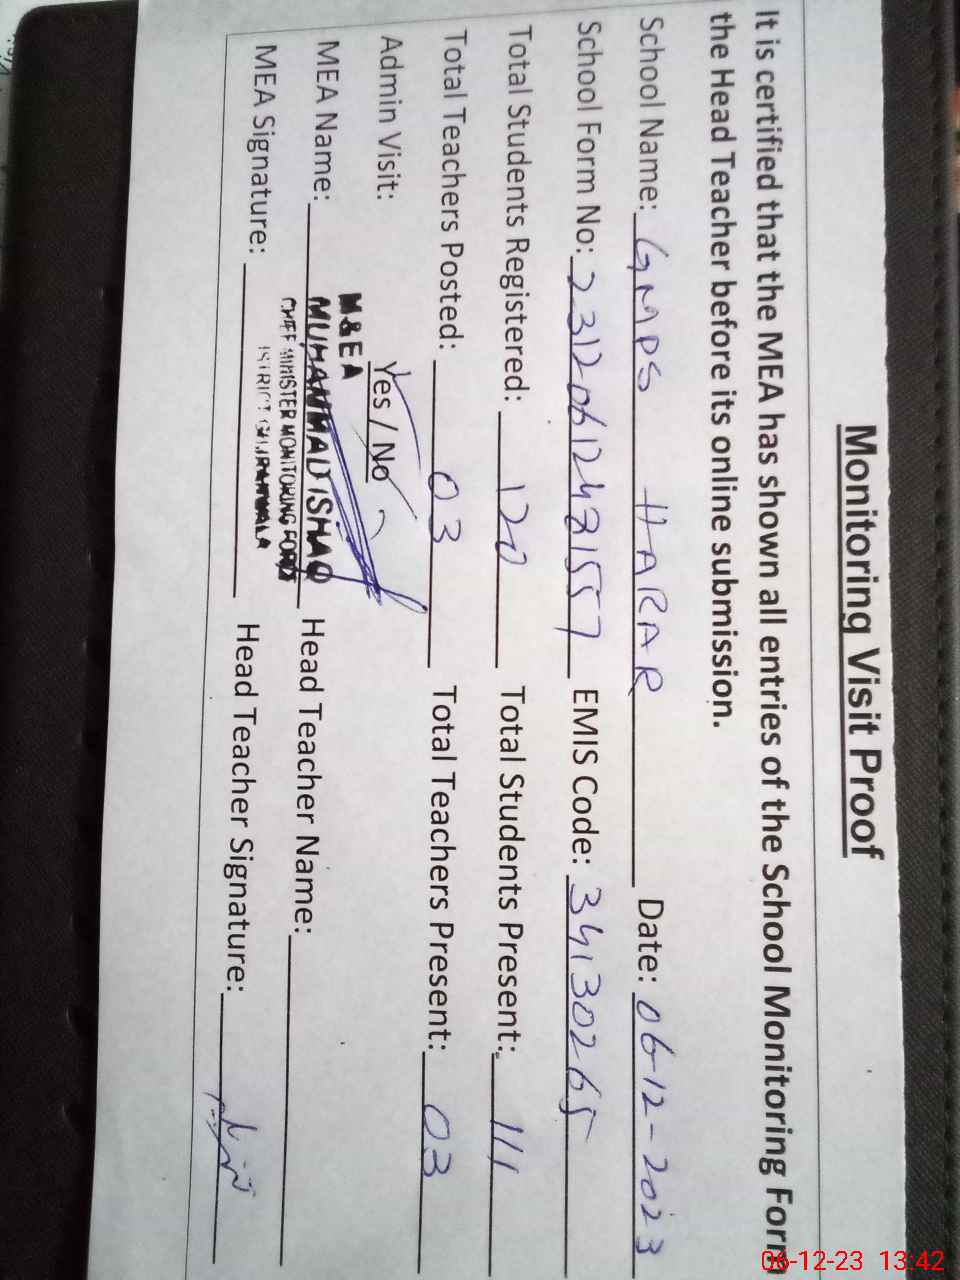 Monitoring Visit Proof
It is certified that the MEA has shown all entries of the School Monitoring Form
the Head Teacher before its online submission.
School Name: GMPS HARAR Date: 06-12-2023
School Form No: 2312061242157 EMIS Code: 34130265
Total Students Registered: 120 Total Students Present: 111
Total Teachers Posted: 03 Total Teachers Present: 03
Admin Visit: Yes / No
M&EA
MEA Name: MUHAMMAD ISHAQ Head Teacher Name:
CHIEF MINISTER MONITORING FORCE
MEA Signature: DISTRICT GUJRANWALA Head Teacher Signature:
06-12-23 13:42